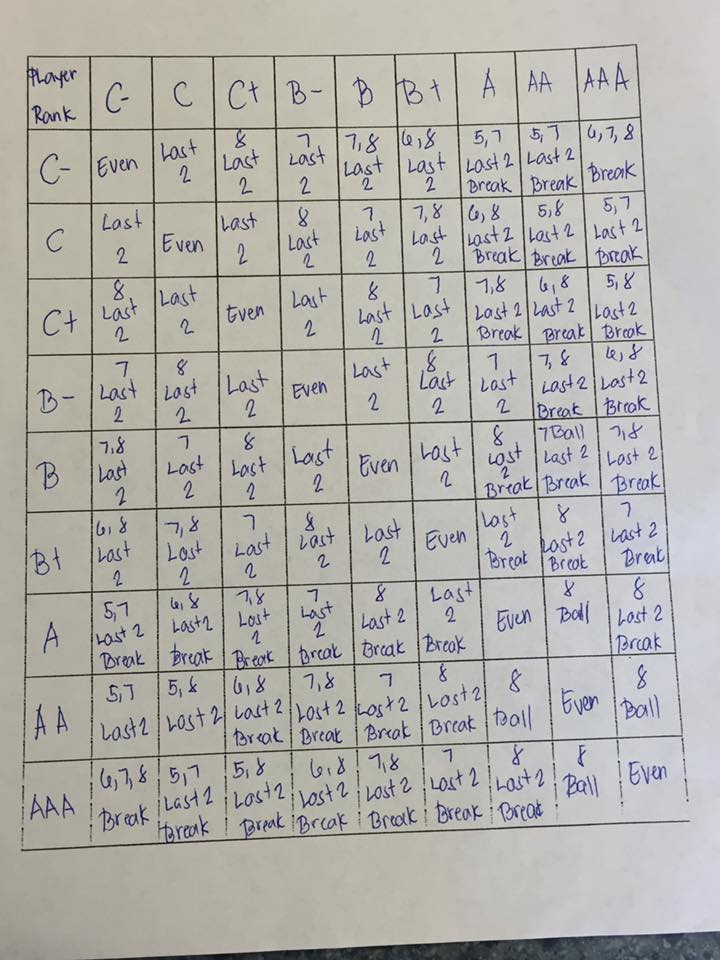 Player Rank C- C C+ B- B B+ A AA AAA
C- Even Last 2 8 Last 2 7 Last 2 7,8 Last 2 6,8 Last 2 5,7 Last 2 Break 5,7 Last 2 Break 6,7,8 Break
C Last 2 Even Last 2 8 Last 2 7 Last 2 7,8 Last 2 6,8 Last 2 Break 5,8 Last 2 Break 5,7 Last 2 Break
C+ 8 Last 2 Last 2 Even Last 2 8 Last 2 7 Last 2 7,8 Last 2 Break 6,8 Last 2 Break 5,8 Last 2 Break
B- 7 Last 2 8 Last 2 Last 2 Even Last 2 8 Last 2 7 Last 2 7,8 Last 2 Break 6,8 Last 2 Break
B 7,8 Last 2 7 Last 2 8 Last 2 Last 2 Even Last 2 8 Last 2 Break 7 Ball Last 2 Break 7,8 Last 2 Break
B+ 6,8 Last 2 7,8 Last 2 7 Last 2 8 Last 2 Last 2 Even Last 2 Break 8 Last 2 Break 7 Last 2 Break
A 5,7 Last 2 Break 6,8 Last 2 Break 7,8 Last 2 Break 7 Last 2 Break 8 Last 2 Break Last 2 Break Even 8 Ball 8 Last 2 Break
AA 5,7 Last 2 5,8 Last 2 6,8 Last 2 Break 7,8 Last 2 Break 7 Last 2 Break 8 Last 2 Break 8 Ball Even 8 Ball
AAA 6,7,8 Break 5,7 Last 2 Break 5,8 Last 2 Break 6,8 Last 2 Break 7,8 Last 2 Break 7 Last 2 Break 8 Last 2 Break 8 Ball Even